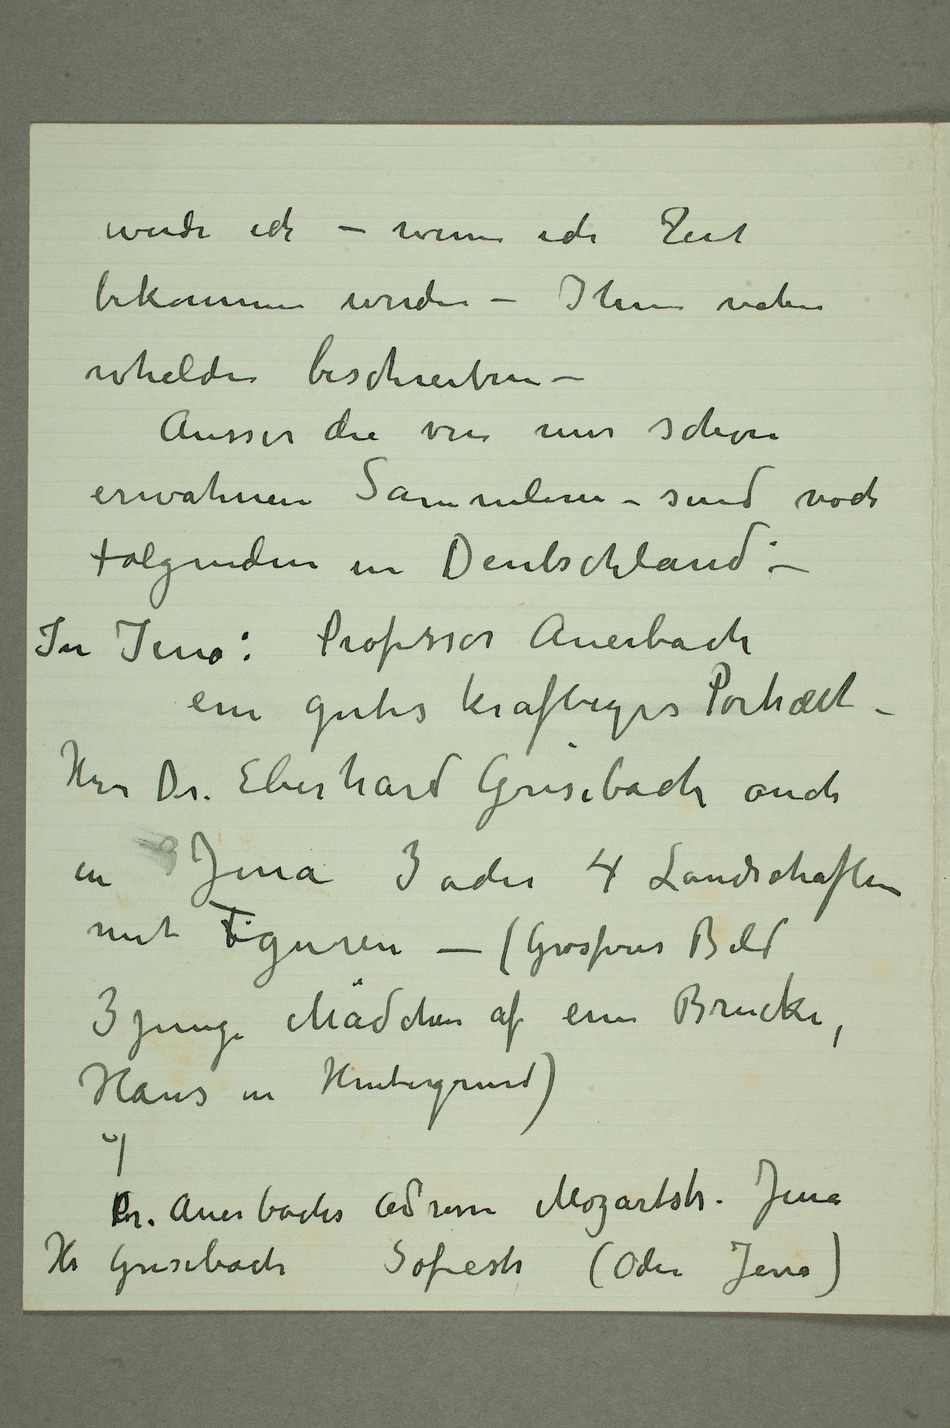 werde ich – wenn ich Zeit
bekommen werden – Ihnen
beschreiben –
Ausser die von mir schon
erwähnen Sammlern – sind noch
folgenden in Deutschland: –
In Jena: Professor Auerbach
ein gutes kraftiges Portræt –
Herr Dr. Eberhard Grisebach auch
in Jena 3 oder 4 Landschaften
mit Figuren – (Grosses Bild
3 junge Mädchen af ein Brücke,
Haus in Hintergrund)
Pr. Auerbachs Adresse Mozartstr. Jena
Hr Grisebach Sofiestr (Oder Jena)